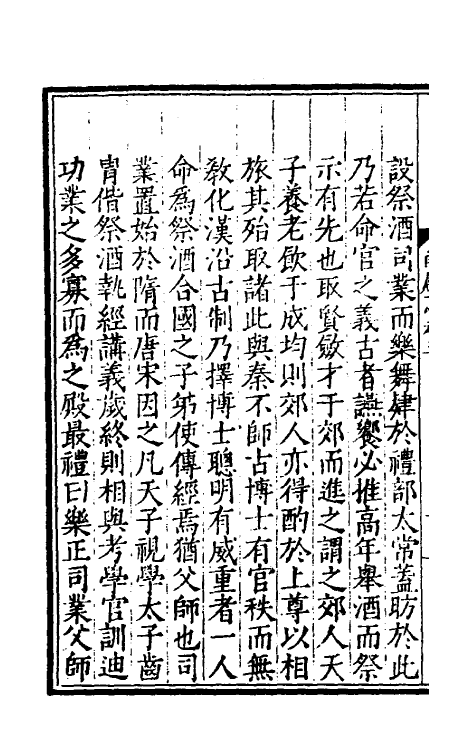 設祭酒司業而樂舞肄於禮部太常蓋昉於此
乃若命官之義古者讌饗必推高年舉酒而祭
示有先也取賢斂才于郊而進之謂之郊人天
子養老飲于成均則郊人亦得酌於上尊以相
旅其殆取諸此與秦不師古博士有官秩而無
敎化漢沿古制乃擇博士聰明有威重者一人
命爲祭酒合國之子弟使傳經焉猶父師也司
業置始於隋而唐宋因之凡天子視學太子齒
胄偕祭酒執經講義歲終則相與考學官訓迪
功業之多寡而爲之殿最禮曰樂正司業父師